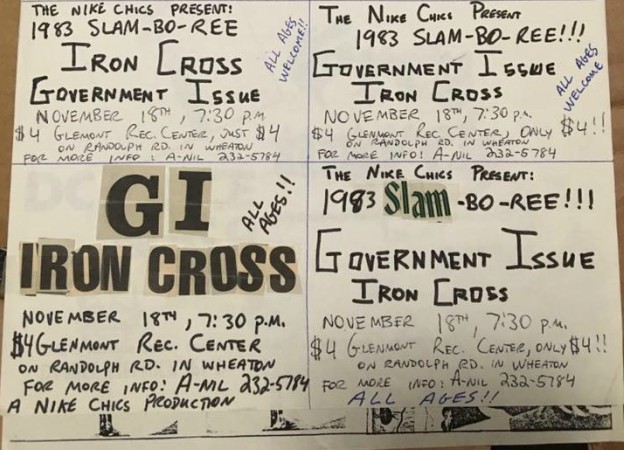 THE NIKE CHICS PRESENT:
1983 SLAM-BO-REE
ALL AGES
WELCOME!!
IRON CROSS
GOVERNMENT ISSUE
NOVEMBER 18TH, 7:30 P.M.
$4 GLENMONT REC. CENTER, JUST $4
ON RANDOLPH RD. IN WHEATON
FOR MORE INFO: A-NIL 232-5784
THE NIKE CHICS PRESENT
1983 SLAM-BO-REE!!!
GOVERNMENT ISSUE
ALL AGES
WELCOME
IRON CROSS
NOVEMBER 18TH, 7:30 P.M.
$4 GLENMONT REC. CENTER, ONLY $4!!
ON RANDOLPH RD. IN WHEATON
FOR MORE INFO: A-NIL 232-5784
GI
ALL
AGES!!
IRON CROSS
NOVEMBER 18TH, 7:30 P.M.
$4 GLENMONT REC. CENTER
ON RANDOLPH RD. IN WHEATON
FOR MORE INFO: A-NIL 232-5784
A NIKE CHICS PRODUCTION
THE NIKE CHICS PRESENT:
1983 Slam-BO-REE!!!
GOVERNMENT ISSUE
IRON CROSS
NOVEMBER 18TH, 7:30 P.M.
$4 GLENMONT REC. CENTER, ONLY $4!!
ON RANDOLPH RD. IN WHEATON
FOR MORE INFO: A-NIL 232-5784
ALL AGES!!